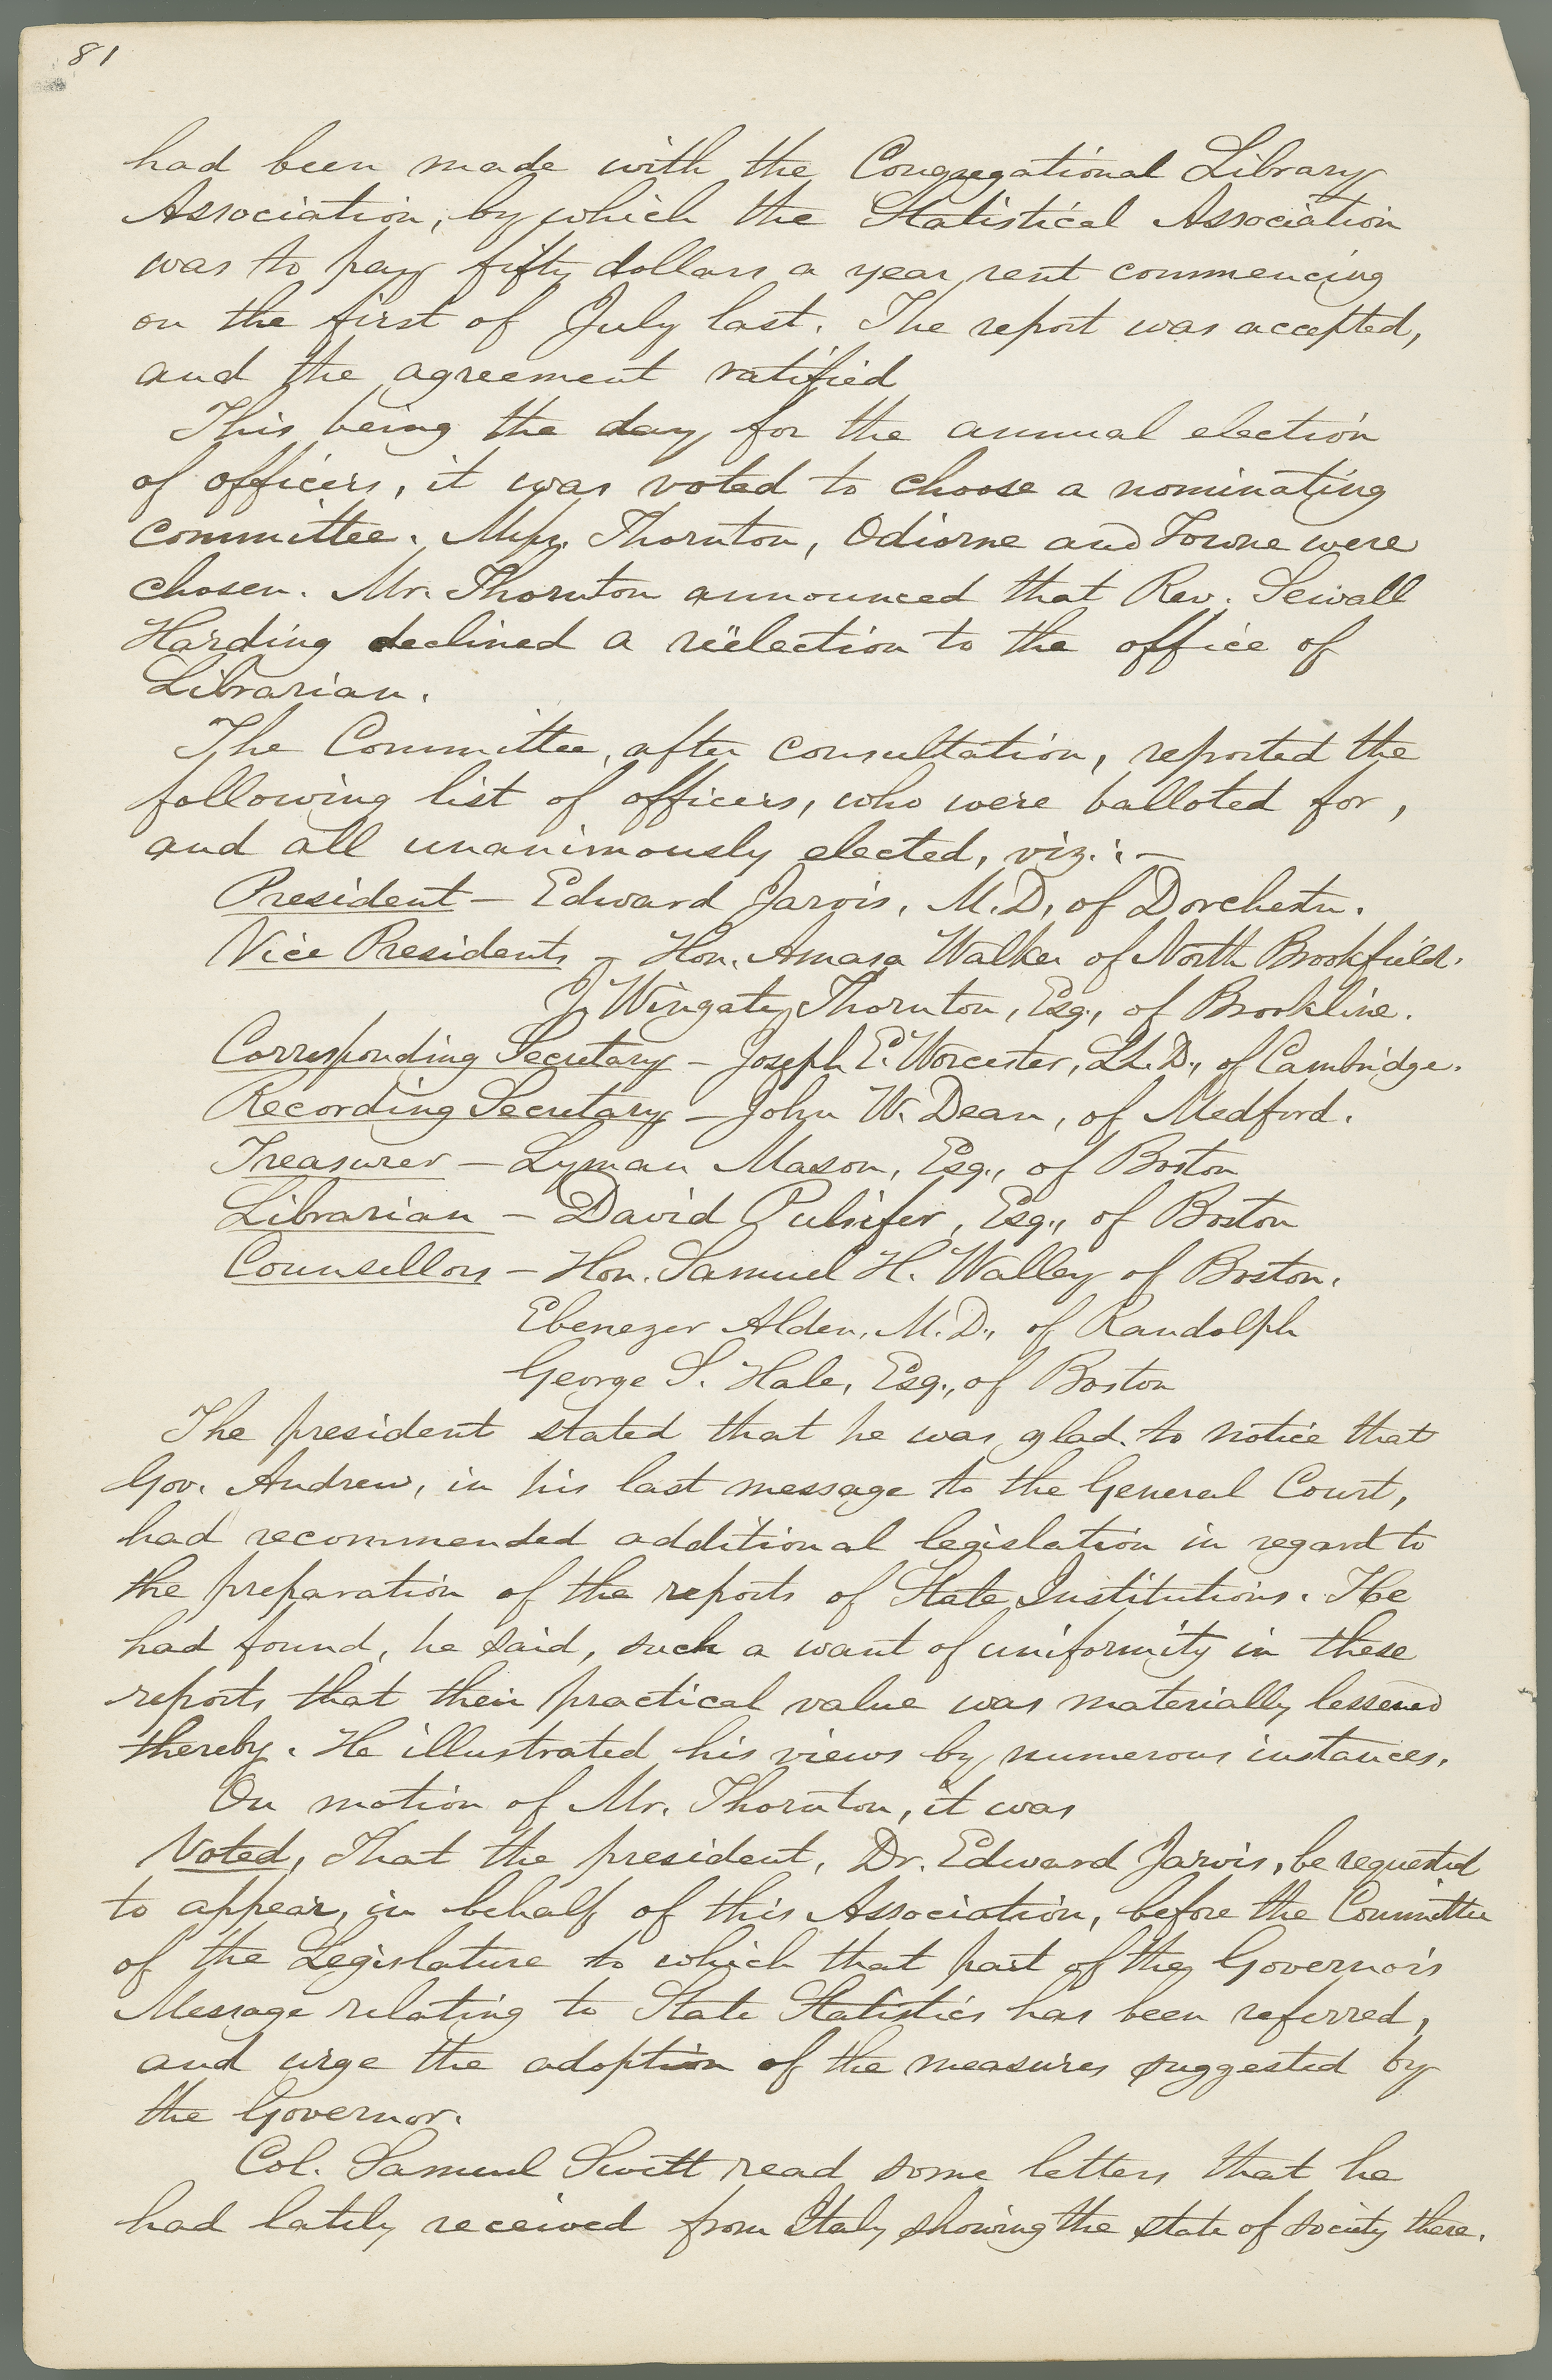 81
had been made with the Congregational Library
Association, by which the Statistical Association
was to pay fifty dollars a year rent commencing
on the first of July last. The report was accepted,
and the agreement ratified
This being the day for the annual election
of officers, it was voted to choose a nominating
committee. Messrs. Thornton, Odiorne and Towne were
chosen. Mr. Thornton announced that Rev. Sewall
Harding declined a reëlection to the office of
Librarian.
The Committee, after consultation, reported the
following list of officers, who were balloted for,
and all unanimously elected, viz.:—
President — Edward Jarvis, M.D, of Dorchester.
Vice Presidents — Hon. Amasa Walker of North Brookfield.
J. Wingate Thornton, Esq., of Brookline.
Corresponding Secretary — Joseph E. Worcester, LL.D., of Cambridge.
Recording Secretary — John W. Dean, of Medford.
Treasurer — Lyman Mason, Esq., of Boston
Librarian — David Pulsifer, Esq., of Boston
Counsellors — Hon. Samuel H. Walley of Boston.
Ebenezer Alden, M.D., of Randolph
George S. Hale, Esq., of Boston
The president stated that he was glad to notice that
Gov. Andrew, in his last message to the General Court,
had recommended additional legislation in regard to
the preparation of the reports of State Institutions. He
had found, he said, such a want of uniformity in these
reports that their practical value was materially lessened
thereby. He illustrated his views by numerous instances.
On motion of Mr. Thornton, it was
Voted, That the president, Dr. Edward Jarvis, be requested
to appear, in behalf of this Association, before the Committee
of the Legislature to which that part of the Governor's
Message relating to State Statistics has been referred,
and urge the adoption of the measures suggested by
the Governor.
Col. Samuel Swett read some letters that he
had lately received from Italy showing the state of society there.